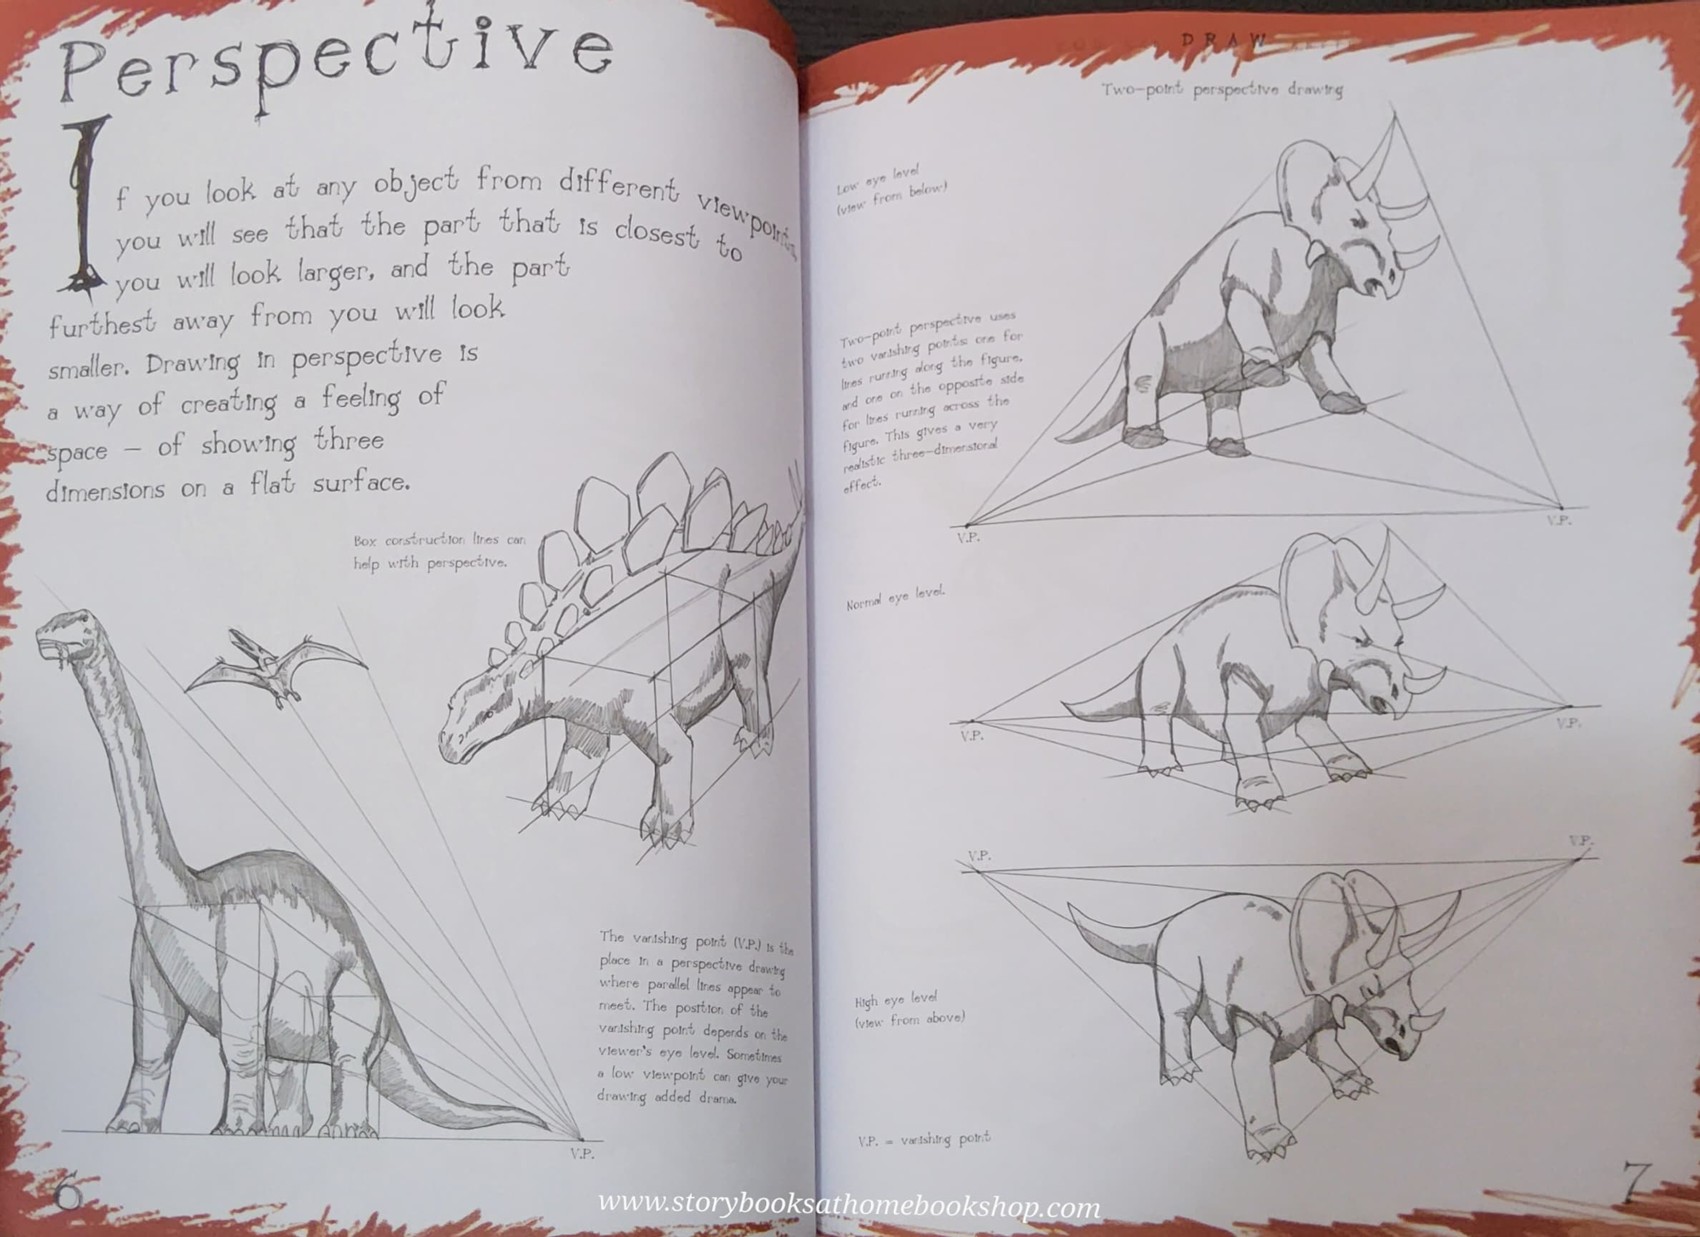 Perspective
If you look at any object from different viewpoints
you will see that the part that is closest to
you will look larger, and the part
furthest away from you will look
smaller. Drawing in perspective is
a way of creating a feeling of
space – of showing three
dimensions on a flat surface.
Box construction lines can
help with perspective.
The vanishing point (V.P.) is the
place in a perspective drawing
where parallel lines appear to
meet. The position of the
vanishing point depends on the
viewer's eye level. Sometimes
a low viewpoint can give your
drawing added drama.
V.P.
6
DRAW
Two-point perspective drawing
Low eye level
(view from below)
Two-point perspective uses
two vanishing points: one for
lines running along the figure,
and one on the opposite side
for lines running across the
figure. This gives a very
realistic three-dimensional
effect.
V.P.
V.P.
Normal eye level.
V.P.
V.P.
V.P.
V.P.
High eye level
(view from above)
V.P. = vanishing point
7
www.storybooksathomebookshop.com